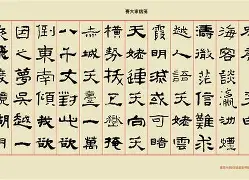 海客談瀛洲煙
濤微茫信難求
越人語天姥雲
霞明滅或可睹
天姥連天向天
橫勢拔五嶽掩
赤城天臺一萬
八千丈對此欲
倒東南傾我欲
因之夢吳越一